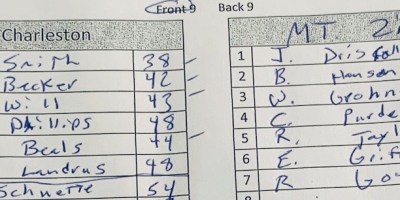 Front 9 Back 9
Charleston
Smith 38
Becker 42
Will 43
Phillips 48
Beals 44
Landrus 48
Schnette 54
MT. Zi
1 J. Driskoll
2 B. Hansen
3 W. Grohn
4 C. Purde
5 R. Tayl
6 E. Grif
7 R Go